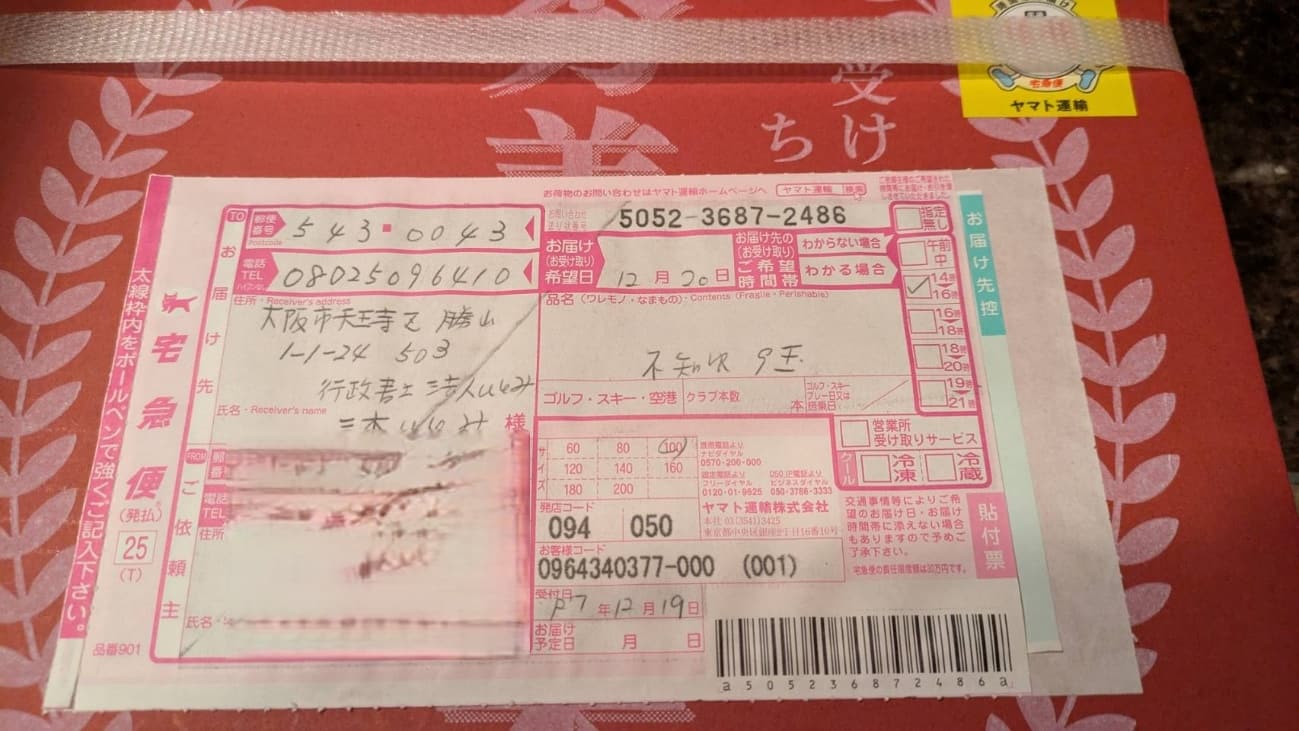 受け
ち
宅急便
ヤマト運輸
お荷物のお問い合わせはヤマト運輸ホームページへ ヤマト運輸 検索
お問い合わせ
送り状番号
5052-3687-2486
TO 郵便番号 Postcode 543-0043
電話 TEL 08025096410
お届け先
住所・Receiver's address
大阪市天王寺区 勝山
1-1-24 503
行政書士法人
氏名・Receiver's name
様
お届け
(お受け取り)
希望日
12月20日
お届け先の
(お受け取り)
ご希望
時間帯
わからない場合
わかる場合
指定無し
午前中
14時
16時
16時
18時
18時
20時
19時
21時
お届け先控
品名(ワレモノ・なまもの)・Contents (Fragile・Perishable)
不知火 9玉
ゴルフ・スキー・空港
クラブ本数
本
ゴルフ・スキー
プレー日又は
搭乗日
営業所
受け取りサービス
クール
冷凍
冷蔵
サイズ
60 80 100
120 140 160
180 200
携帯電話より
ナビダイヤル
0570-200-000
固定電話より
フリーダイヤル
0120-01-9625
050 IP電話より
ビジネスダイヤル
050-3786-3333
ヤマト運輸株式会社
本社 03(3541)3425
東京都中央区銀座2丁目16番10号
発店コード
094 050
お客様コード
0964340377-000 (001)
受付日
年12月19日
お届け
予定日
月 日
交通事情等によりご希
望のお届け日・お届け
時間帯に添えない場合
もありますので予めご
了承下さい。
宅急便の責任限度額は30万円です。
貼付票
FROM
電話
TEL
住所
ご依頼主
氏名
a505236872486a
太線枠内をボールペンで強くご記入下さい。
宅急便
(発払)
25
(T)
品番901